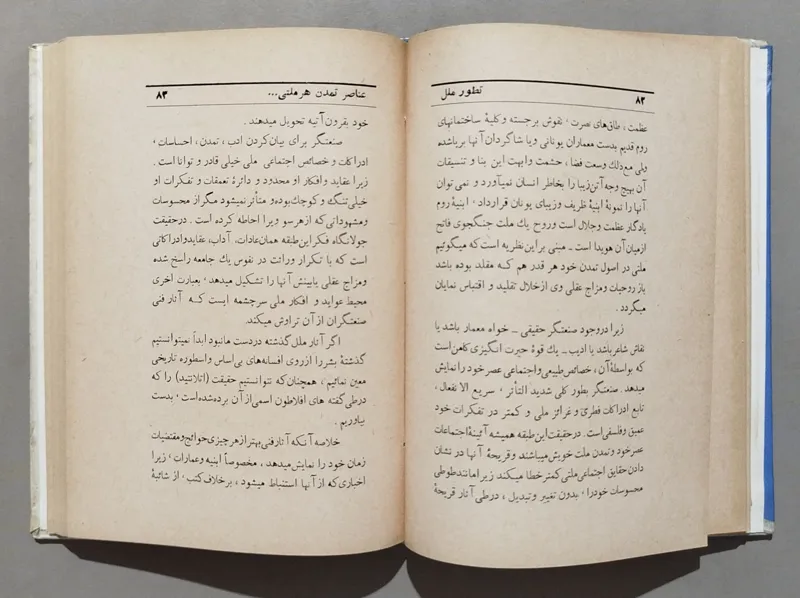 ۸۲
تطور ملل
عظمت ، طاق‌های نصرت ، نقوش برجسته و کلیهٔ ساختمانهای
روم قدیم بدست معماران یونانی ویا شاگردان آنها برپاشده
ولی مع‌ذلك وسعت فضا ، حشمت وابهت این بنا و تنسیقات
آن بهیچ وجه آتن‌زیبا را بخاطر انسان نمیآورد و نمی توان
آنها را نمونهٔ ابنیهٔ ظریف وزیبای یونان قرارداد ، ابنیهٔ روم
یادگار عظمت وجلال است وروح یك ملت جنگجوی فاتح
ازمیان آن هویدا است ـ مبنی براین نظریه است که میگوئیم
ملتی در اصول تمدن خود هر قدر هم که مقلد بوده باشد
باز روحیات ومزاج عقلی وی ازخلال تقلید و اقتباس نمایان
میگردد .
زیرا دروجود صنعتگر حقیقی ـ خواه معمار باشد یا
نقاش شاعر باشد یا ادیب ـ یك قوهٔ حیرت انگیزی کامن است
که بواسطهٔ آن ، خصائص طبیعی واجتماعی عصر خود را نمایش
میدهد. صنعتگر بطور کلی شدید التأثر ، سریع الا نفعال ،
تابع ادراکات فطری و غرائز ملی و کمتر در تفکرات خود
عمیق وفلسفی است . درحقیقت این طبقه همیشه آئینهٔ اجتماعات
عصر خود وتمدن ملت خویش میباشند و قریحهٔ آنها در نشان
دادن حقایق اجتماعی ملتی کمتر خطا میکند زیرا مانند طوطی
محسوسات خود را ، بدون تغییر وتبدیل ، درطی آثار قریحهٔ
عناصر تمدن هر ملتی...
۸۳
خود بقرون آتیه تحویل میدهند .
صنعتگر برای بیان کردن ادب ، تمدن ، احساسات ،
ادراکات و خصائص اجتماعی ملی خیلی قادر و توانا است .
زیرا عقاید وافکار او محدود و دائرهٔ تعمقات و تفکرات او
خیلی تنگ و کوچك بوده و متأثر نمیشود مگر از محسوسات
ومشهوداتی که ازهر سو ویرا احاطه کرده است . درحقیقت
جولانگاه فکر این طبقه همان عادات، آداب، عقاید وادراکاتی
است که با تکرار وراثت در نفوس یك جامعه راسخ شده
ومزاج عقلی یا بینش آنها را تشکیل میدهد، بعبارت اخری
محیط عواید و افکار ملی سرچشمه ایست که آثار فنی
صنعتگران از آن تراوش میکند.
اگر آثار ملل گذشته دردست مانبود ابداً نمیتوانستیم
گذشتهٔ بشر را ازروی افسانه‌های بی‌اساس واسطوره تاریخی
معین نمائیم ، همچنان که نتوانستیم حقیقت (اتلانتید) را که
درطی گفته های افلاطون اسمی از آن برده شده است ، بدست
بیاوریم .
خلاصه آنکه آثار فنی بهتر از هر چیزی حوائج ومقتضیات
زمان خود را نمایش میدهد ، مخصوصاً ابنیه وعمارات ، زیرا
اخباری که از آنها استنباط میشود ، برخلاف کتب ، از شائبهٔ